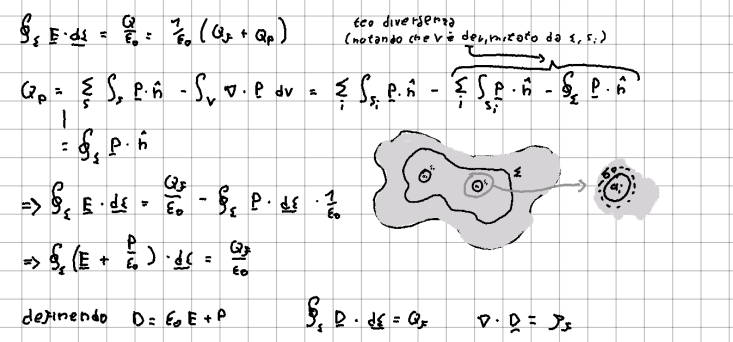 ∮_Σ E · dΣ = Q/ε₀ = 1/ε₀ (Q_F + Q_P)
teo divergenza
(notando che V è delimitato da Σ, S_i)
Q_P = Σ_S ∫_S P · n̂ - ∫_V ∇ · P dV = Σ_i ∫_{S_i} P · n̂ - Σ_i ∫_{S_i} P · n̂ - ∮_Σ P · n̂
= ∮_Σ P · n̂
Σ
=> ∮_Σ E · dΣ = Q_F/ε₀ - ∮_Σ P · dΣ · 1/ε₀
=> ∮_Σ (E + P/ε₀) · dΣ = Q_F/ε₀
definendo D = ε₀ E + P ∮_Σ D · dΣ = Q_F ∇ · D = ρ_F